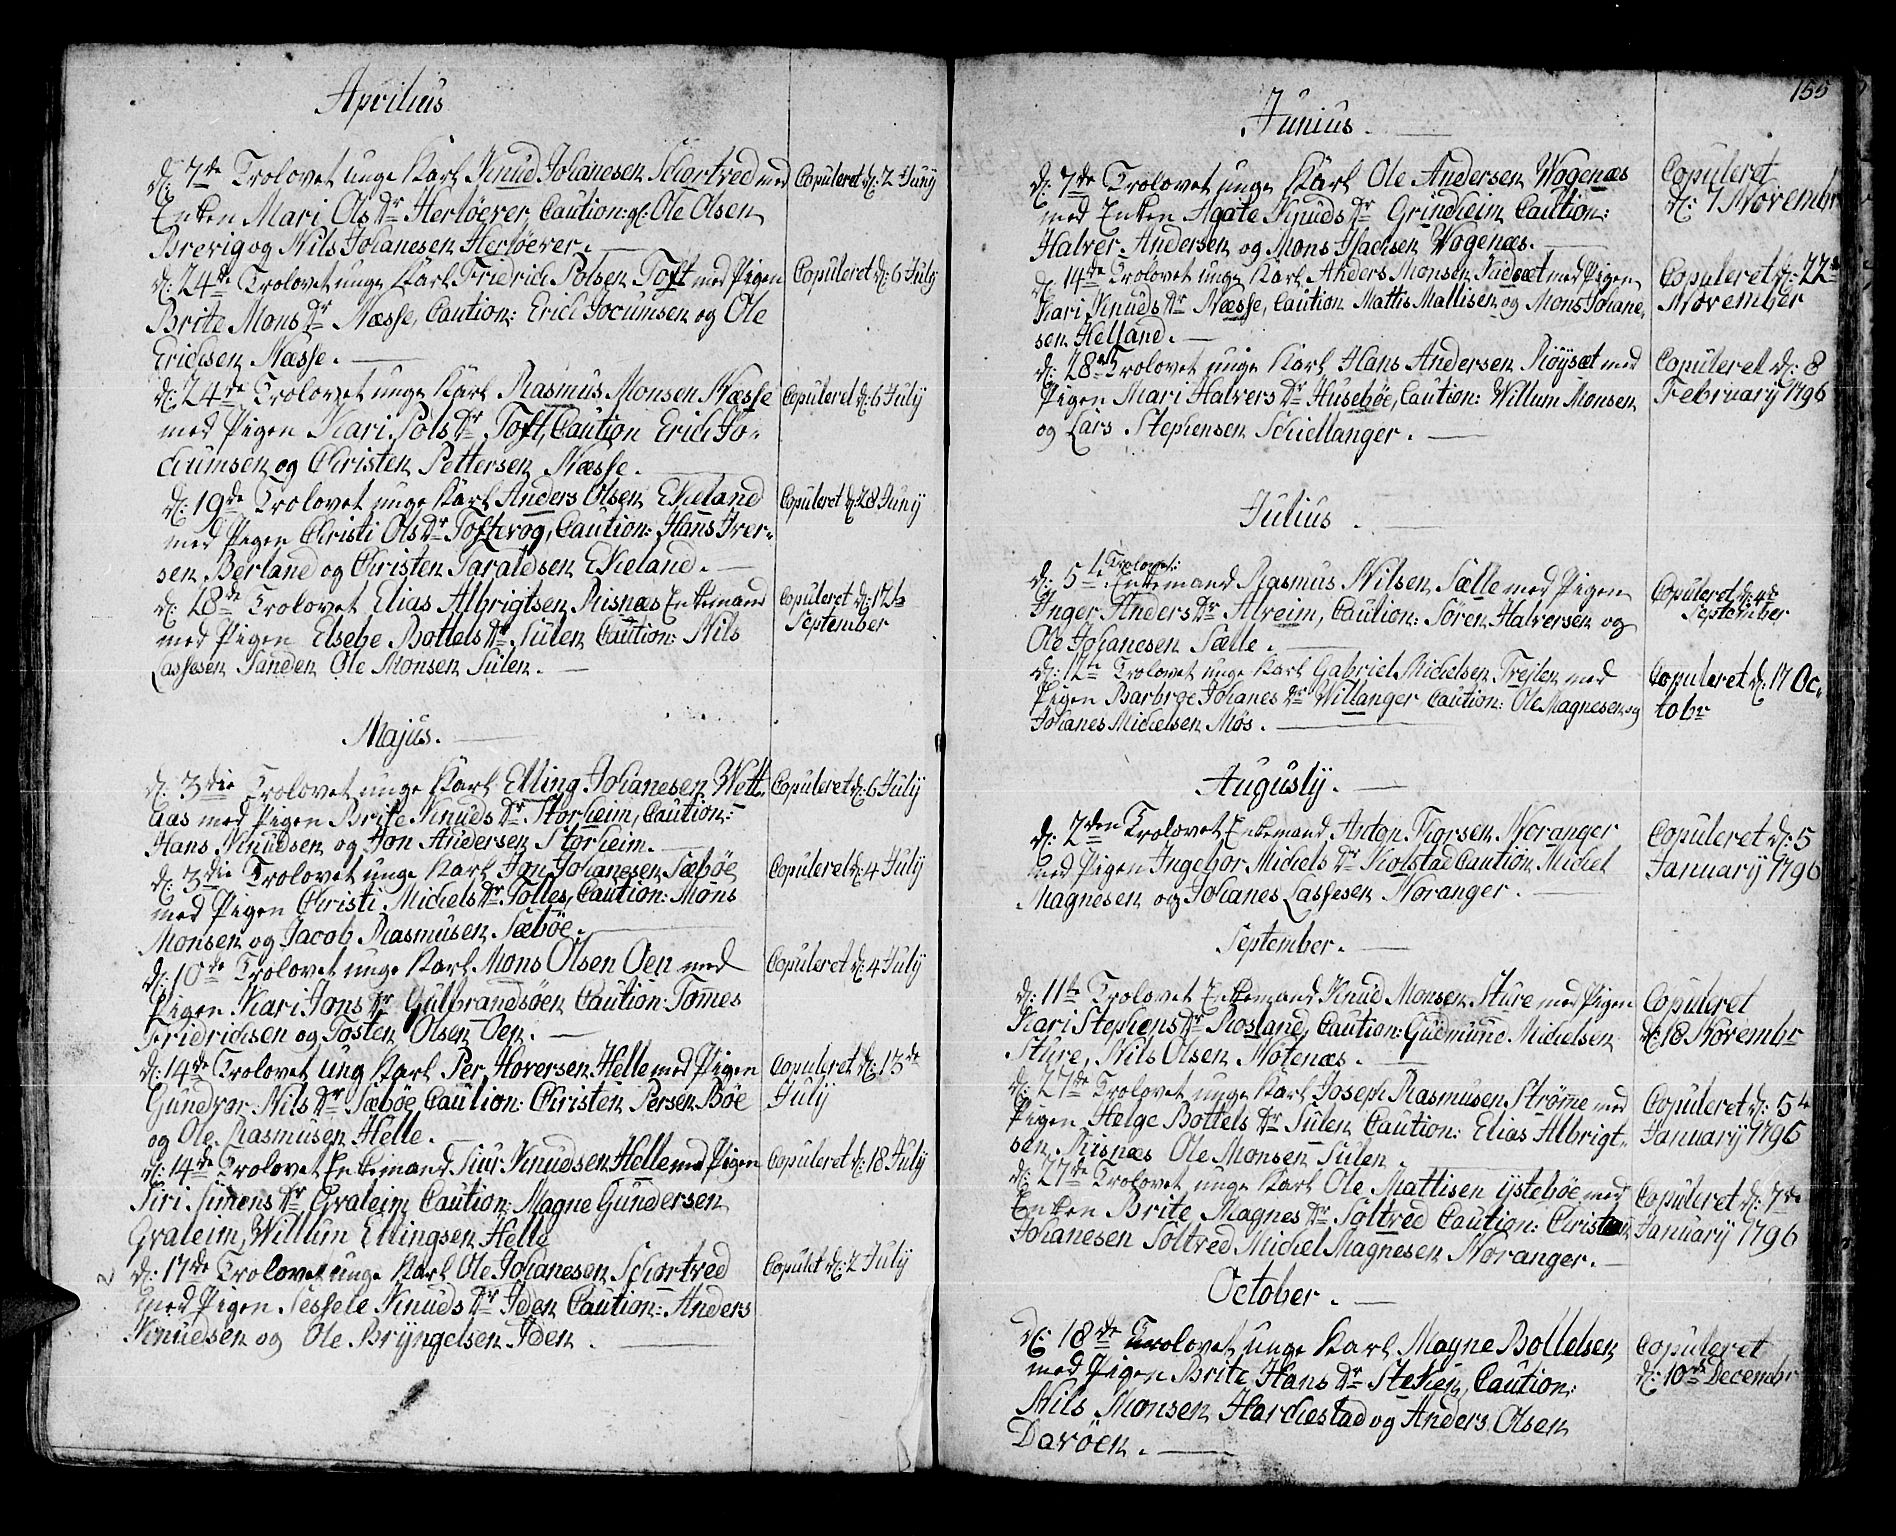 Aprilius
d: 7de Trolovet unge Karl Knud Johanesen Schortred med
Copuleret d: 2 Juny
Enken Mari Ols Dr Herlöever, Caution: gl. Ole Olsen
Brevig og Nils Johanesen Herlöever.
d: 24de Trolovet unge Karl Fridrich Polsen Toft med Pigen
Copuleret d: 6 July
Brite Mons Dr Næsse, Caution: Erich Jocumsen og Ole
Erichsen Næsse.
d: 24de Trolovet unge Karl Rasmus Monsen Næsse
Copuleret d: 6 July
med Pigen Kari Pols Dr Toft, Caution Erich Jo-
chumsen og Christen Pettersen Næsse.
d: 19de Trolovet unge Karl Anders Olsen Ekeland
Copuleret d: 28 Juny
med Pigen Christi Ols Dr Toftevog, Caution: Hans Iver-
sen Berland og Christen Taraldsen Ekeland.
d: 28de Trolovet Elias Albrigtsen Risnæs Enkemand
Copuleret d: 12te
September
med Pigen Elsebe Bottels Dr Sülen Caution: Nils
Lassesen Sanden Ole Monsen Sülen.
Majus.
d: 3die Trolovet unge Karl Elling Johanesen Wett-
Copuleret d: 6 July
aas med Pigen Brite Knuds Dr Storheim, Caution:
Hans Knudsen og Jon Andersen Storheim.
d: 3die Trolovet unge Karl Jon Johanesen Sæböe
Copuleret d: 4 July
med Pigen Christi Michels Dr Tolles, Caution: Mons
Monsen og Jacob Rasmusen Sæböe.
d: 10de Trolovet unge Karl Mons Olsen Oen med
Copuleret d: 4 July
Pigen Kari Jons Dr Gulbrandsöen Caution: Tomes
Fridrichsen og Tosten Olsen Oen.
d: 14de Trolovet ung Karl Per Hoversen Helle med Pigen
Copuleret d: 13de
July
Gundvor Nils Dr Sæböe Caution: Christen Persen Böe
og Ole Rasmusen Helle.
d: 14de Trolovet Enkemand Siur Knudsen Helle med Pigen
Copuleret d: 18 July
Siri Simens Dr Graleim Caution: Magne Gundersen
Graleim, Willum Ellingsen Helle
d: 17de Trolovet unge Karl Ole Johanesen Schortred
Copulet d: 2 July
med Pigen Sessele Knuds Dr Iden Caution: Anders
Knudsen og Ole Bryngelsen Iden.
155
Junius.
d: 7de Trolovet unge Karl Ole Andersen Wogenæs
Copuleret
d: 1 Novembr
med Enken Agate Knuds Dr Grindheim Caution:
Halver Andersen og Mons Isachsen Wogenæs.
d: 14de Trolovet unge Karl Anders Monsen med Pigen
Copuleret d: 22de
November
Kari Knuds Dr Næsse, Caution Mattis Mattisen og Mons Johane-
sen Helland.
d: 28de Trolovet unge Karl Hans Andersen Röysæt med
Copuleret d: 8
February 1796
Pigen Mari Halvers Dr Huseböe, Caution: Willum Monsen
og Lars Stephensen Schiellanger.
Julius.
d: 5te Trolovet: Enkemand Rasmus Nilsen Sælle med Pigen
Copuleret d: 4de
September
Inger Anders Dr Alveim, Caution: Sören Halversen og
Ole Johanesen Sælle.
d: 12te Trolovet unge Karl Gabriel Michelsen Trejlen med
Copuleret d: 17 Oc-
tobr
Pigen Barbroe Johanes Dr Willanger Caution: Ole Magnesen og
Johanes Michelsen Møs.
Augusty.
d: 2den Trolovet Enkemand Anton Thorsen Noranger
Copuleret d: 5
January 1796
med Pigen Ingebor Michels Dr Kolstad Caution Michel
Magnesen og Johanes Lassesen Noranger.
September.
d: 11te Trolovet Enkemand Knud Monsen Sture med Pigen
Copuleret
d: 18 Novembr
Kari Stephens Dr Rosland, Caution: Gudmund Michelsen
Sture, Nils Olsen Notenæs.
d: 27de Trolovet unge Karl Joseph Rasmusen Strøme med
Copuleret d: 5te
January 1796
Pigen Helge Bottels Dr Sülen Caution: Elias Albrigt-
sen Risnæs Ole Monsen Sülen.
d: 27de Trolovet unge Karl Ole Mattisen ysteböe med
Copuleret d: 7de
January 1796
Enken Brite Magnes Dr Soltred Caution: Christian
Johanesen Soltred Michel Magnesen Noranger.
October.
d: 18de Trolovet unge Karl Magne Bottelsen
Copuleret
d: 10de Decembr
med Pigen Brite Hans Dr Steken, Caution:
Nils Monsen Harchestad og Anders Olsen
Daröen.